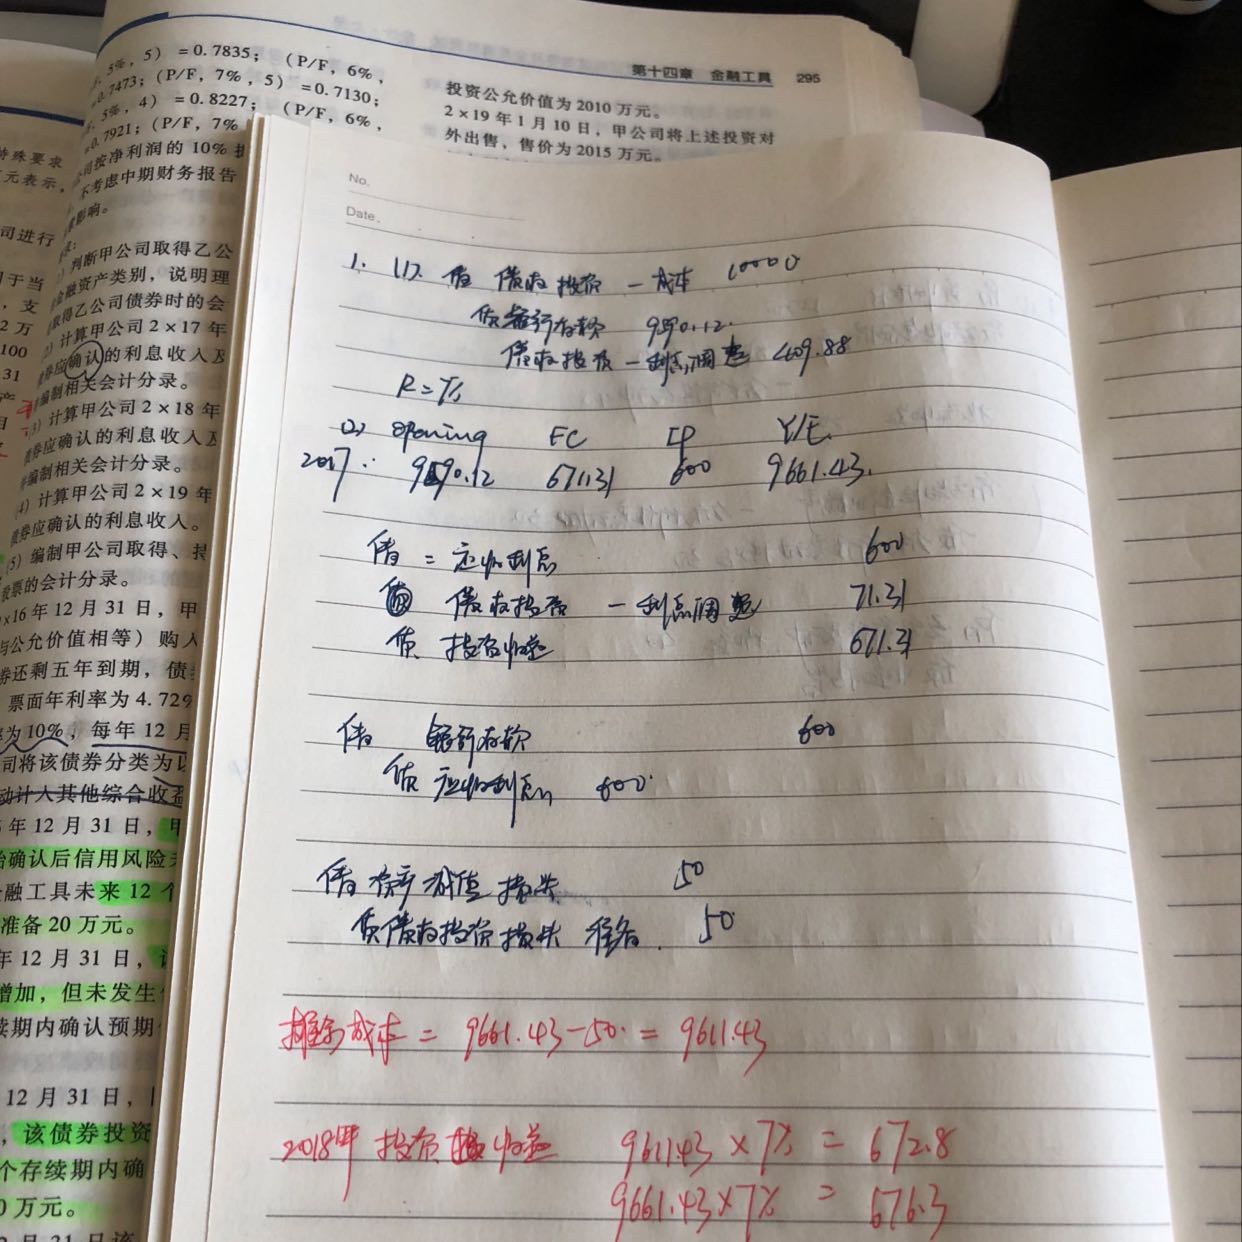 5%，5）＝0.7835；（P/F，6%，
0.7473；（P/F，7%，5）＝0.7130；
5%，4）＝0.8227；（P/F，6%，
0.7921；（P/F，7%
司按净利润的 10%
不考虑中期财务报告
影响。
特殊要求
元表示，
司进行
于当
，支
2 万
100
31
判断甲公司取得乙公
金融资产类别，说明理
取得乙公司债券时的会
计算甲公司 2×17 年
债券应确认的利息收入及
编制相关会计分录。
3）计算甲公司 2×18 年
债券应确认的利息收入及
编制相关会计分录。
（4）计算甲公司 2×19 年
债券应确认的利息收入。
（5）编制甲公司取得、持
股票的会计分录。
×16 年 12 月 31 日，甲
与公允价值相等）购入
券还剩五年到期，债
票面年利率为 4.72%
为10%，每年 12 月
司将该债券分类为以
动计入其他综合收益
年 12 月 31 日，甲
始确认后信用风险
融工具未来 12 个
准备 20 万元。
年 12 月 31 日，
增加，但未发生
续期内确认预期
12 月 31 日，
，该债券投资
个存续期内确
0 万元。
月 31 日该
第十四章 金融工具 295
投资公允价值为 2010 万元。
2×19 年 1 月 10 日，甲公司将上述投资对
外出售，售价为 2015 万元。
No.
Date.
1. (1). 借 债权投资 — 成本 10000
贷 银行存款 9590.12.
债权投资 — 利息调整 409.88
R=7%
(2) opening EC IP Y/E.
2017： 9590.12 671.31 600 9661.43.
借： 应收利息 600
债权投资 — 利息调整 71.31
贷 投资收益 671.31
借 银行存款 600
贷 应收利息 600.
借 资产减值损失 50
贷 债权投资损失准备. 50
摊余成本 = 9661.43-50. = 9611.43
2018年 投资收益 9611.43×7% = 672.8
9661.43×7% = 676.3